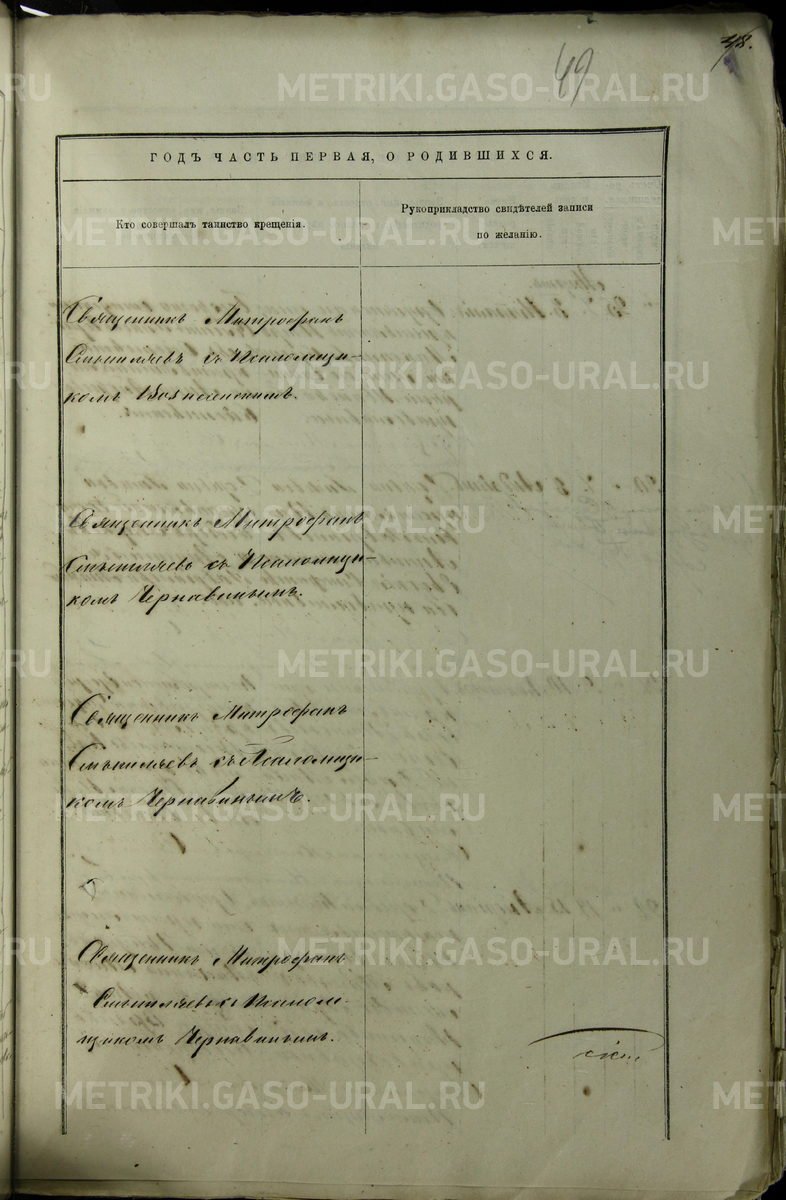 48.
49
ГОДЪ ЧАСТЬ ПЕРВАЯ, О РОДИВШИХСЯ.
Кто совершалъ таинство крещенія.
Рукоприкладство свидѣтелей записи
по желанію.
Священникъ Митрофанъ
Смышляевъ съ Псаломщи-
комъ Вознесенскимъ.
Священникъ Митрофанъ
Смышляевъ съ Псаломщи-
комъ Чернавинымъ.
Священникъ Митрофанъ
Смышляевъ съ Псаломщи-
комъ Чернавинымъ.
Священникъ Митрофанъ
Смышляевъ съ Псалом-
щикомъ Чернавинымъ.
METRIKI.GASO-URAL.RU